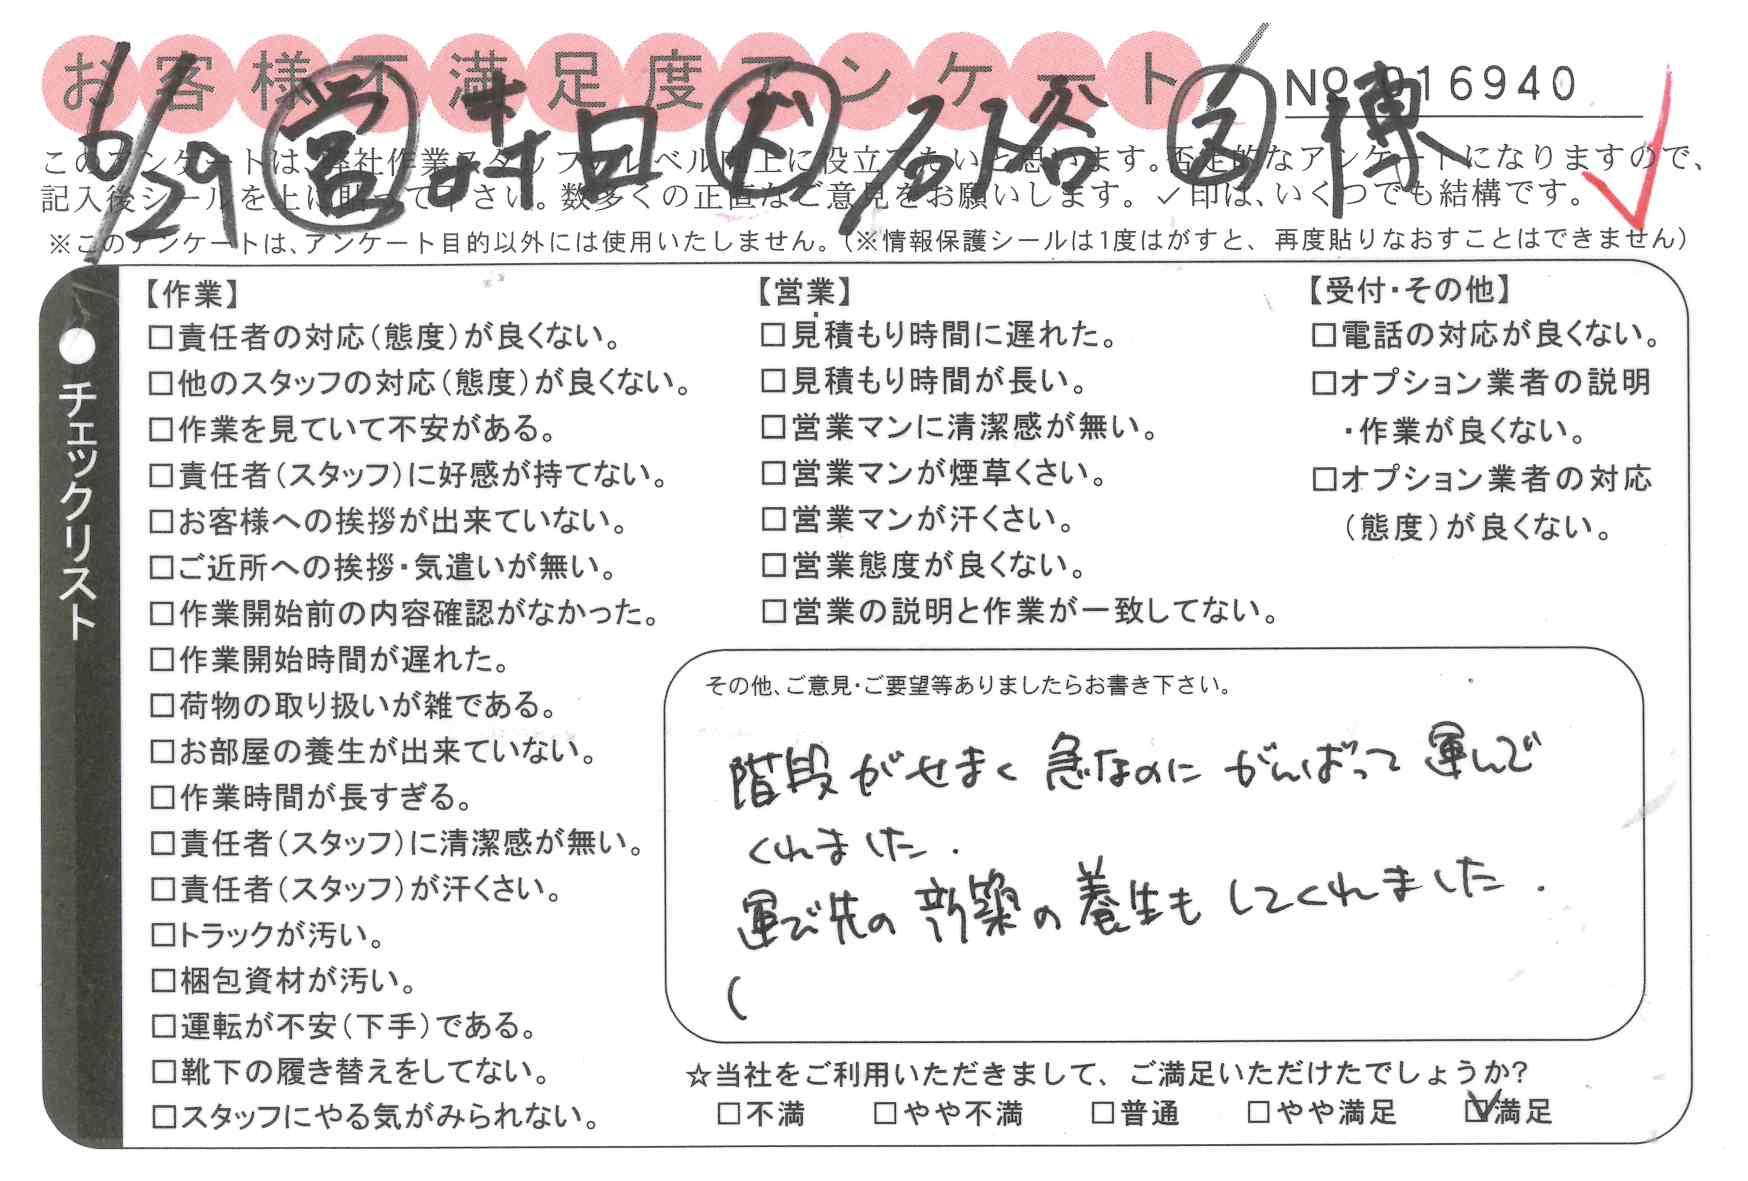 お客様不満足度アンケート
No 016940
6/29 営 村田 ド 石谷 ス 博
このアンケートは、弊社作業スタッフのレベル向上に役立てたいと思います。否定的なアンケートになりますので、
記入後シールを上に貼って下さい。数多くの正直なご意見をお願いします。✓印は、いくつでも結構です。
※このアンケートは、アンケート目的以外には使用いたしません。(※情報保護シールは1度はがすと、再度貼りなおすことはできません)
●チェックリスト
【作業】
□責任者の対応(態度)が良くない。
□他のスタッフの対応(態度)が良くない。
□作業を見ていて不安がある。
□責任者(スタッフ)に好感が持てない。
□お客様への挨拶が出来ていない。
□ご近所への挨拶・気遣いが無い。
□作業開始前の内容確認がなかった。
□作業開始時間が遅れた。
□荷物の取り扱いが雑である。
□お部屋の養生が出来ていない。
□作業時間が長すぎる。
□責任者(スタッフ)に清潔感が無い。
□責任者(スタッフ)が汗くさい。
□トラックが汚い。
□梱包資材が汚い。
□運転が不安(下手)である。
□靴下の履き替えをしてない。
□スタッフにやる気がみられない。
【営業】
□見積もり時間に遅れた。
□見積もり時間が長い。
□営業マンに清潔感が無い。
□営業マンが煙草くさい。
□営業マンが汗くさい。
□営業態度が良くない。
□営業の説明と作業が一致してない。
【受付・その他】
□電話の対応が良くない。
□オプション業者の説明
・作業が良くない。
□オプション業者の対応
(態度)が良くない。
その他、ご意見・ご要望等ありましたらお書き下さい。
階段がせまく急なのにがんばって運んで
くれました.
運び先の新築の養生もしてくれました.
(
☆当社をご利用いただきまして、ご満足いただけたでしょうか?
□不満 □やや不満 □普通 □やや満足 ☑満足